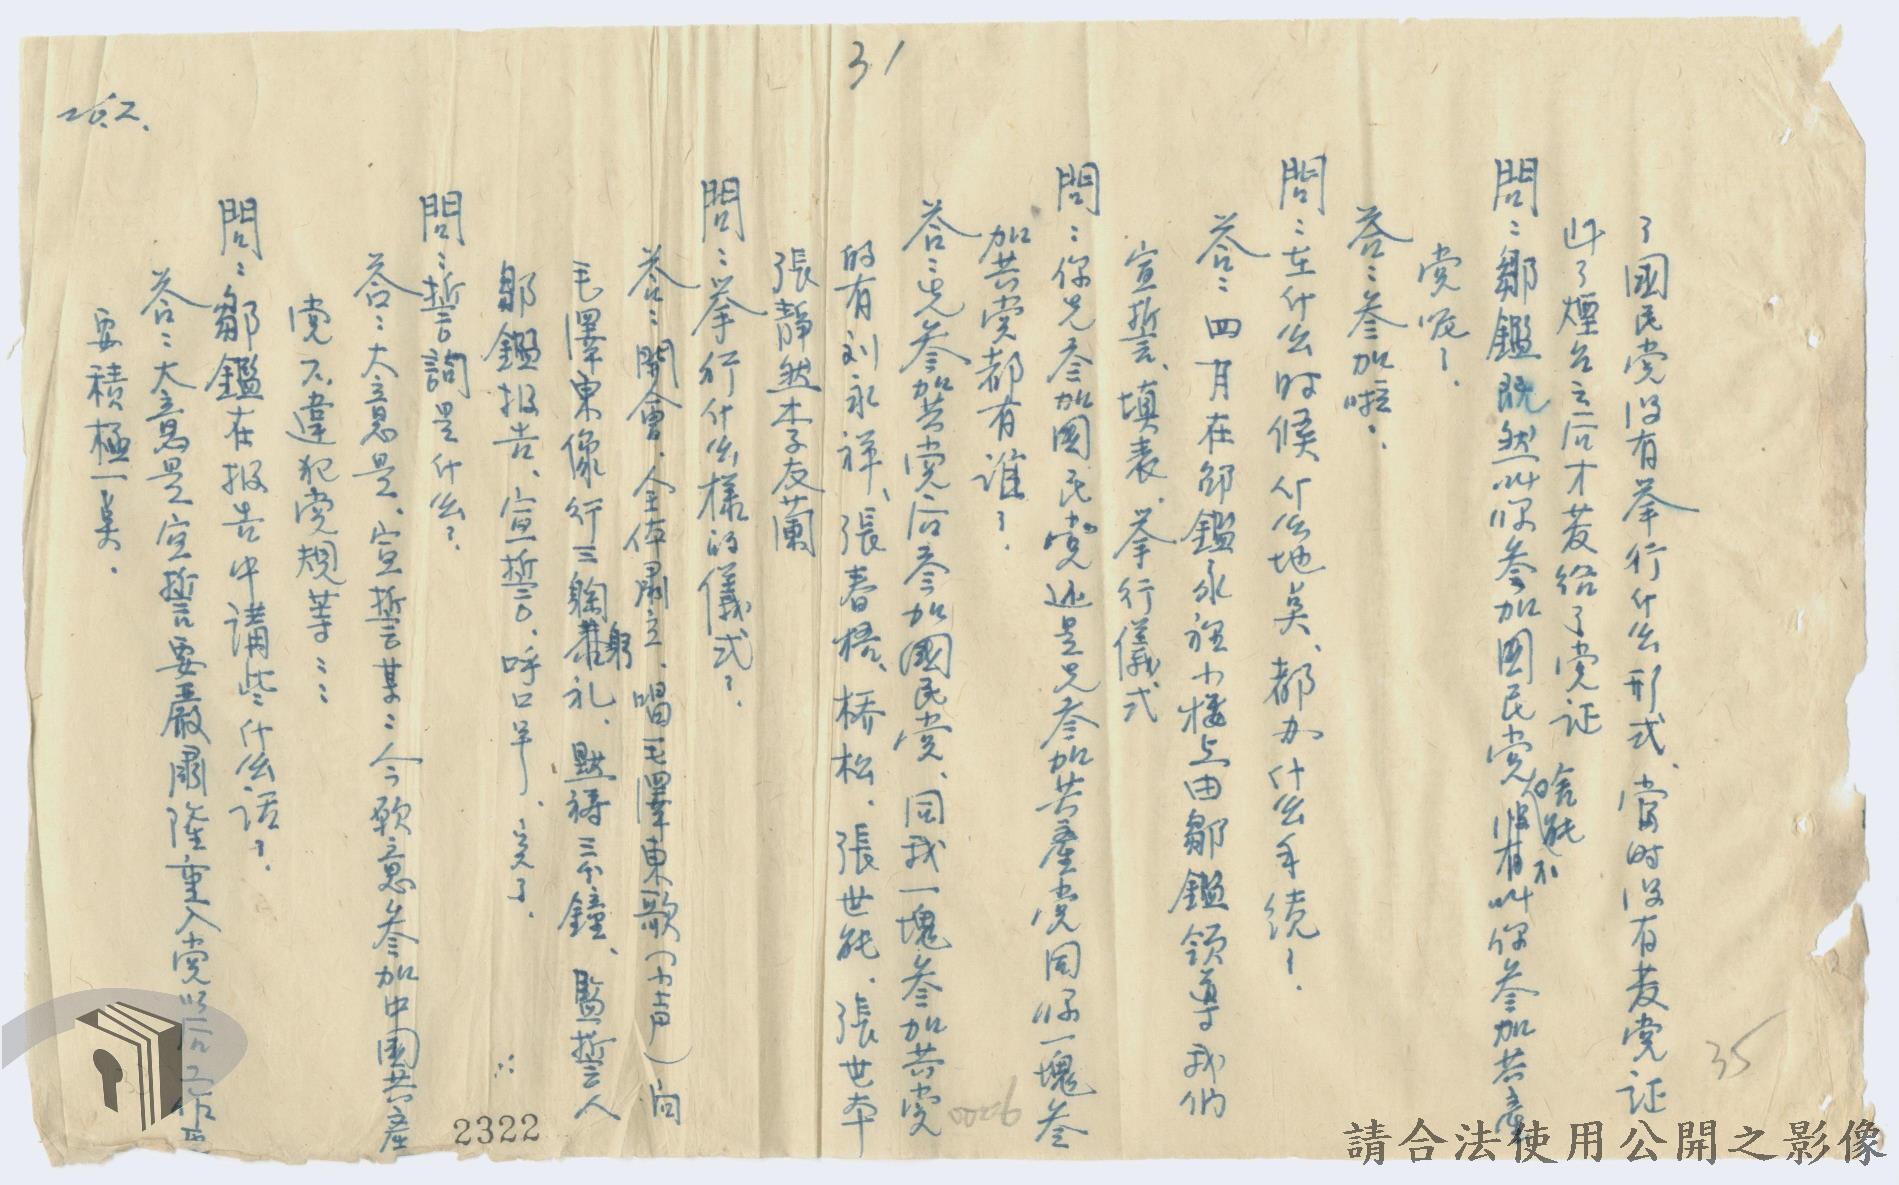 31
了國民党没有举行什么形式、當时没有发党证
叫了煙台之后才发给了党证
問：鄒鑑既然叫你参加国民党啥能不叫你参加共產
党呢？
答：参加啦．
問：在什么时候什么地点、都办什么手续？
答：四月在鄒鑑永祖小楼上由鄒鑑领导我們
宣誓、填表、举行儀式
問：你先参加國民党还是先参加共產党同你一塊参
加共党都有誰？
答：先参加共党后参加國民党、同我一塊参加共党
的有刘永祥、張春梧、桥松、張世能、張世本
張靜然李友蘭
問：举行什么樣的儀式？
答：開會、全体肃立、唱毛澤東歌（小声）向
毛澤東像行三鞠躬礼、默禱三分鐘、監誓人
鄒鑑报告、宣誓、呼口号、完了．
問：誓詞是什么？
答：大意是、宣誓某〻人今願意参加中国共產
党不違犯党規等……
問：鄒鑑在报告中講些什么话？
答：大意是宣誓要嚴肅隆重入党以后工作要
要積極一点．
35
2322
請合法使用公開之影像